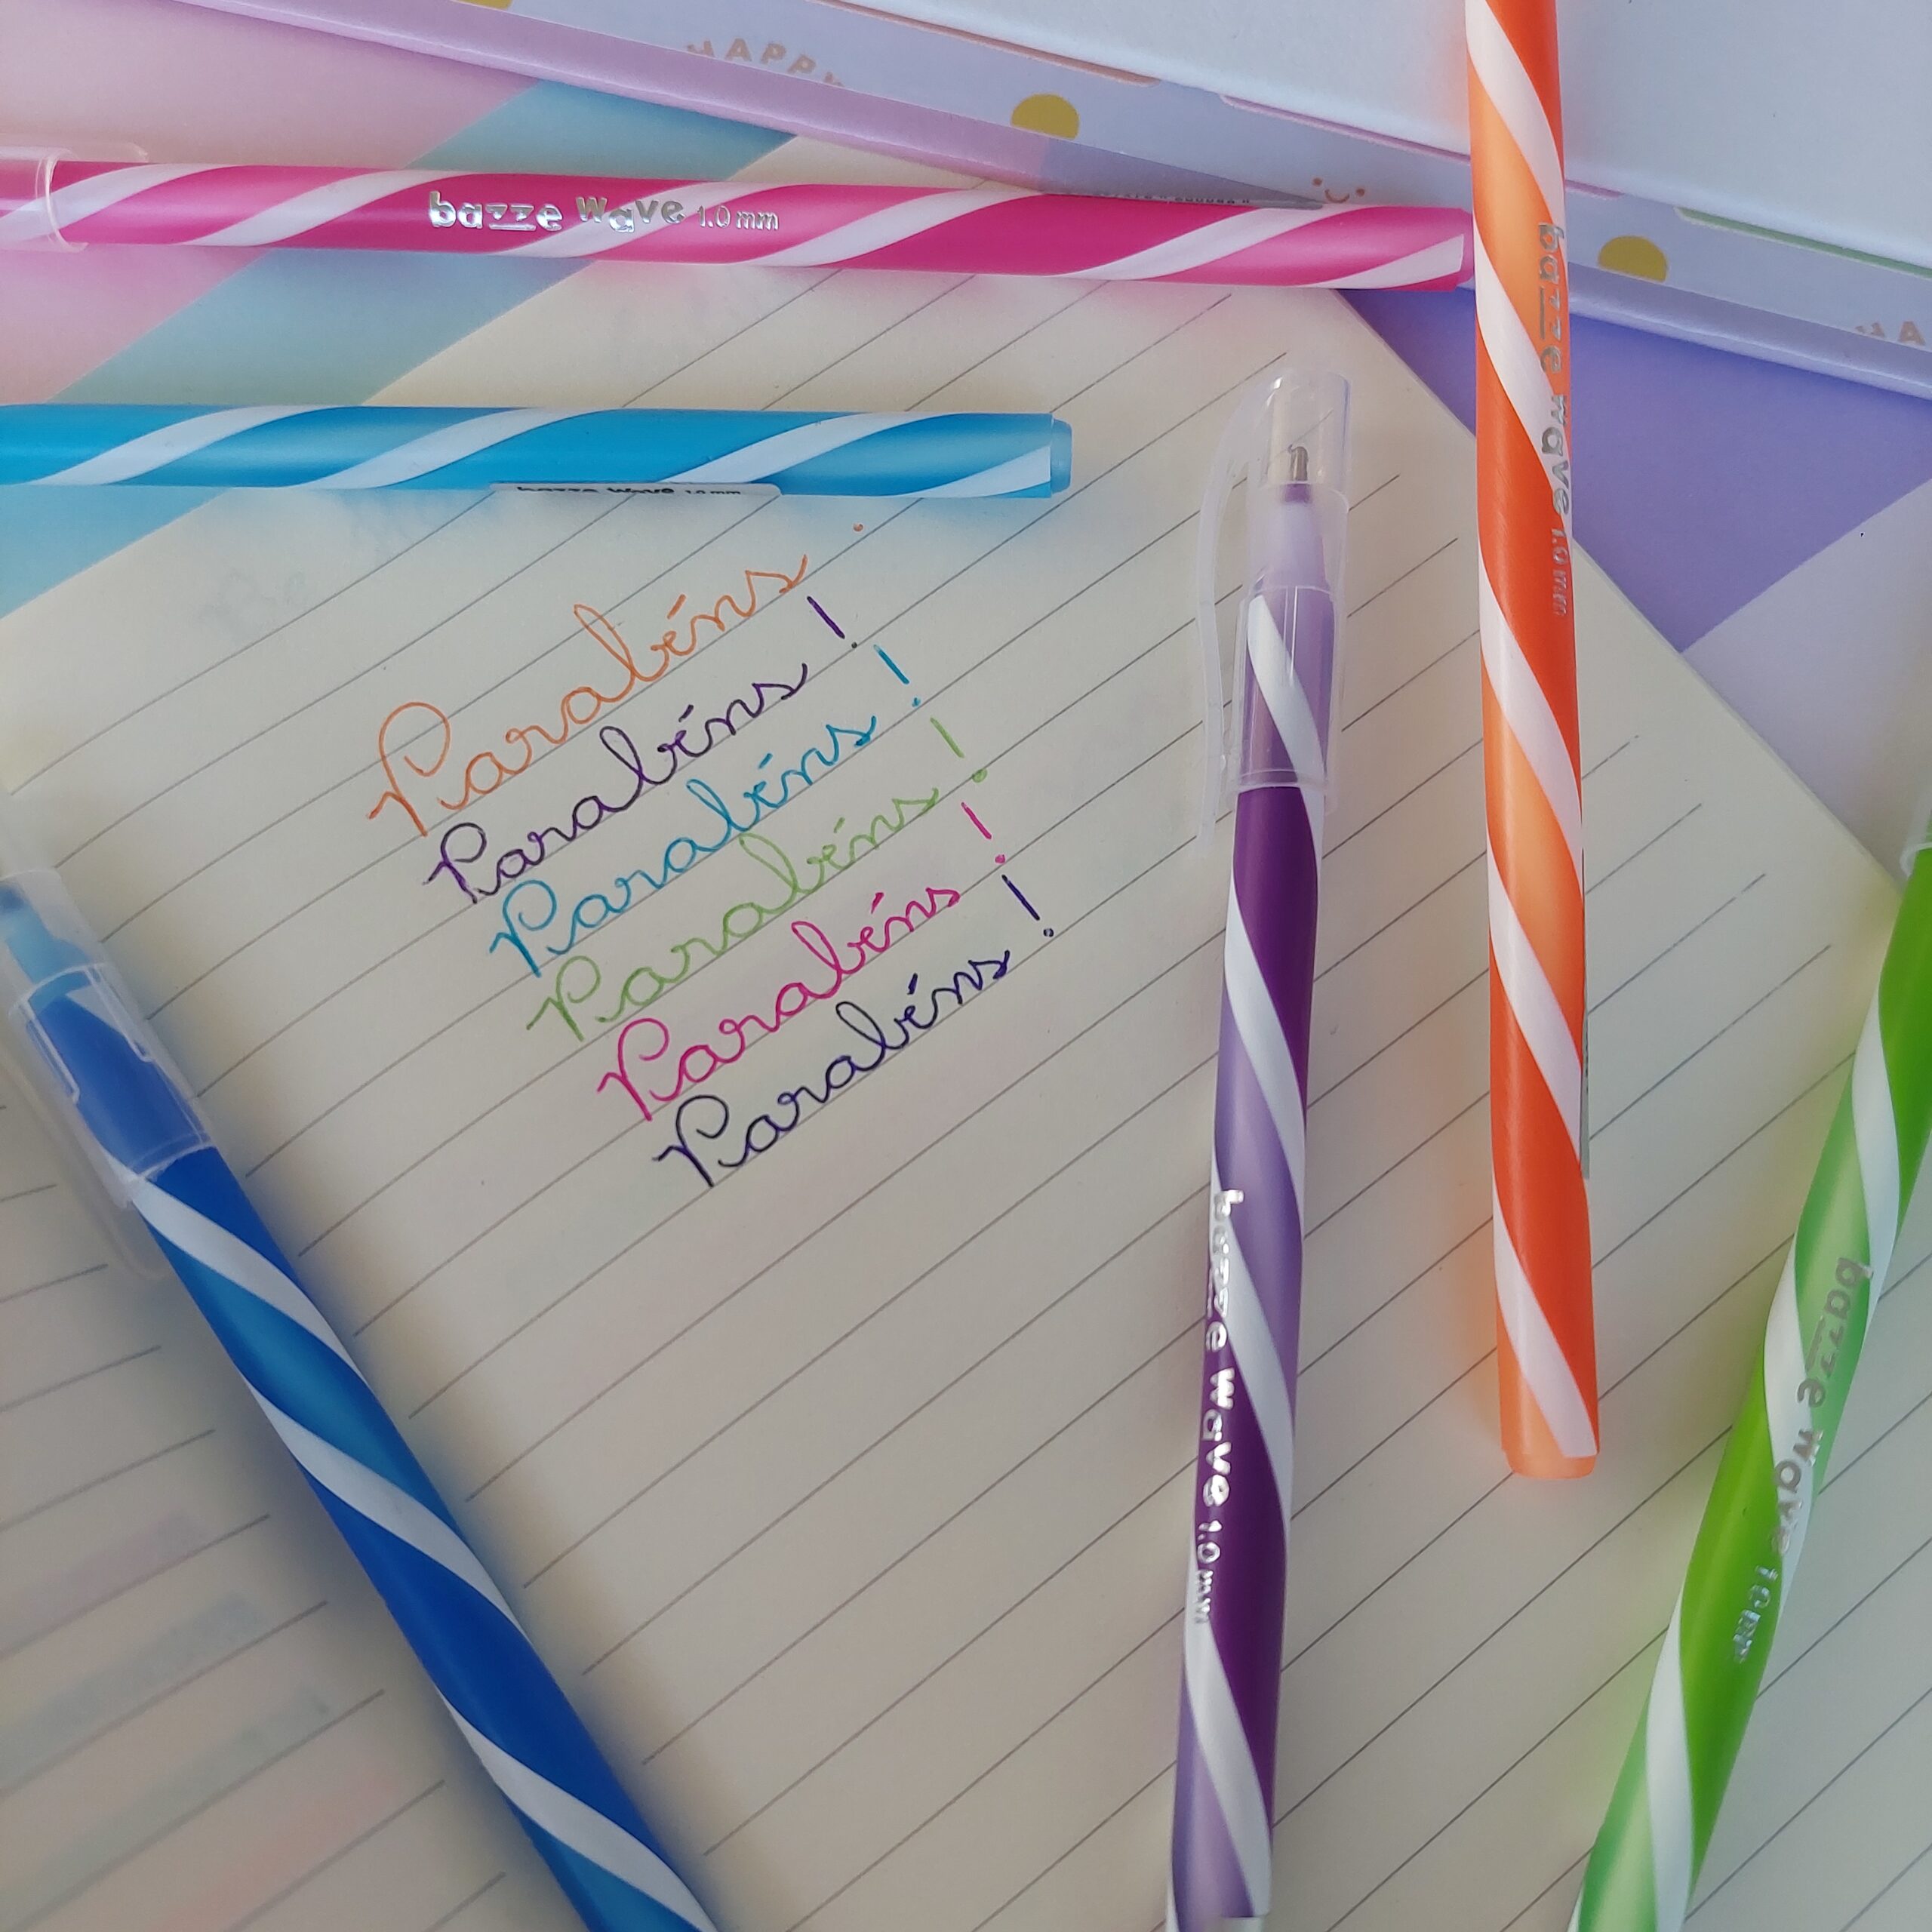 HAPPY
bazze wave 1.0 mm
bazze wave 1.0 mm
bazze wave 1.0 mm
Parabéns.
Parabéns!
Parabéns!
Parabéns!
Parabéns!
Parabéns!
bazze wave 1.0 mm
bazze wave 1.0 mm
HA